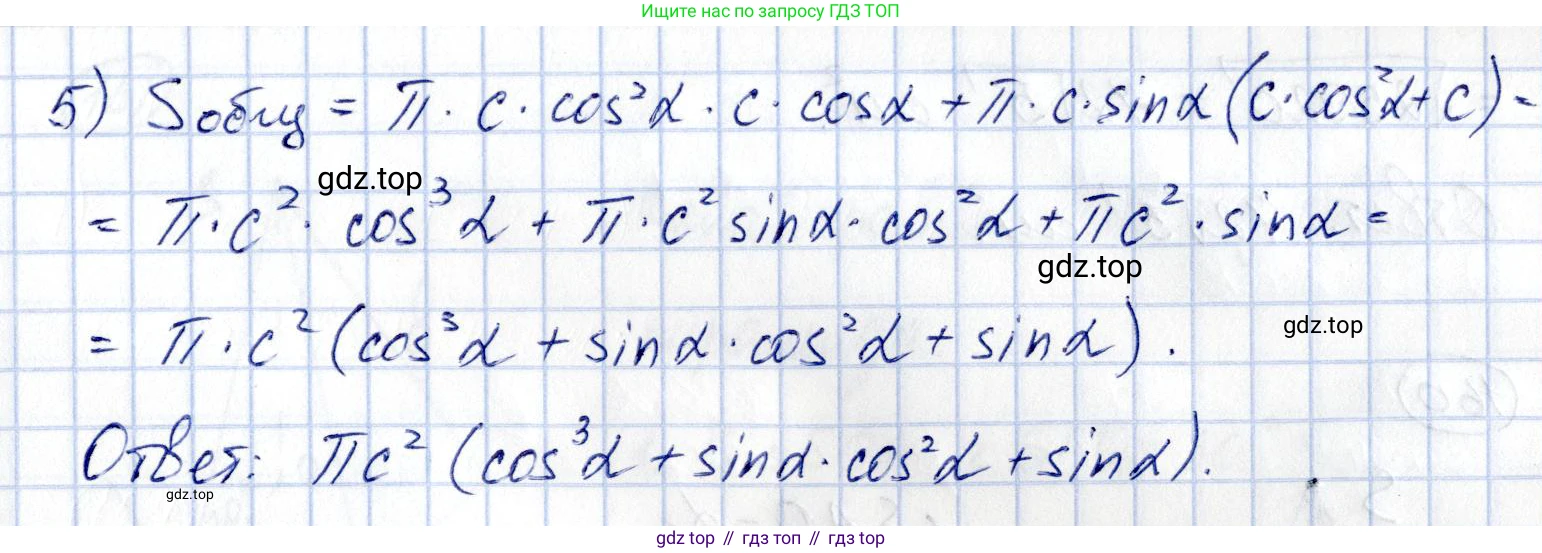 Ищите нас по запросу ГДЗ ТОП
5) Sобщ = π · c · cos²α · c · cosα + π · c · sinα (c · cos²α + c) =
gdz.top
= π · c² · cos³α + π · c² sinα · cos²α + πc² · sinα =
gdz.top
= π · c² (cos³α + sinα · cos²α + sinα).
gdz.top
Ответ: πc² (cos³α + sinα · cos²α + sinα).
gdz.top
gdz top // гдз топ // гдз top